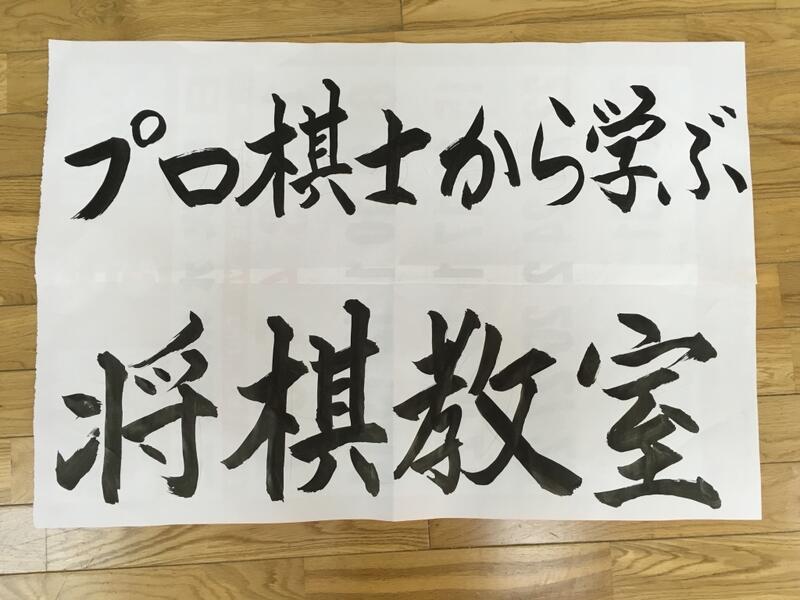 プロ棋士から学ぶ
将棋教室